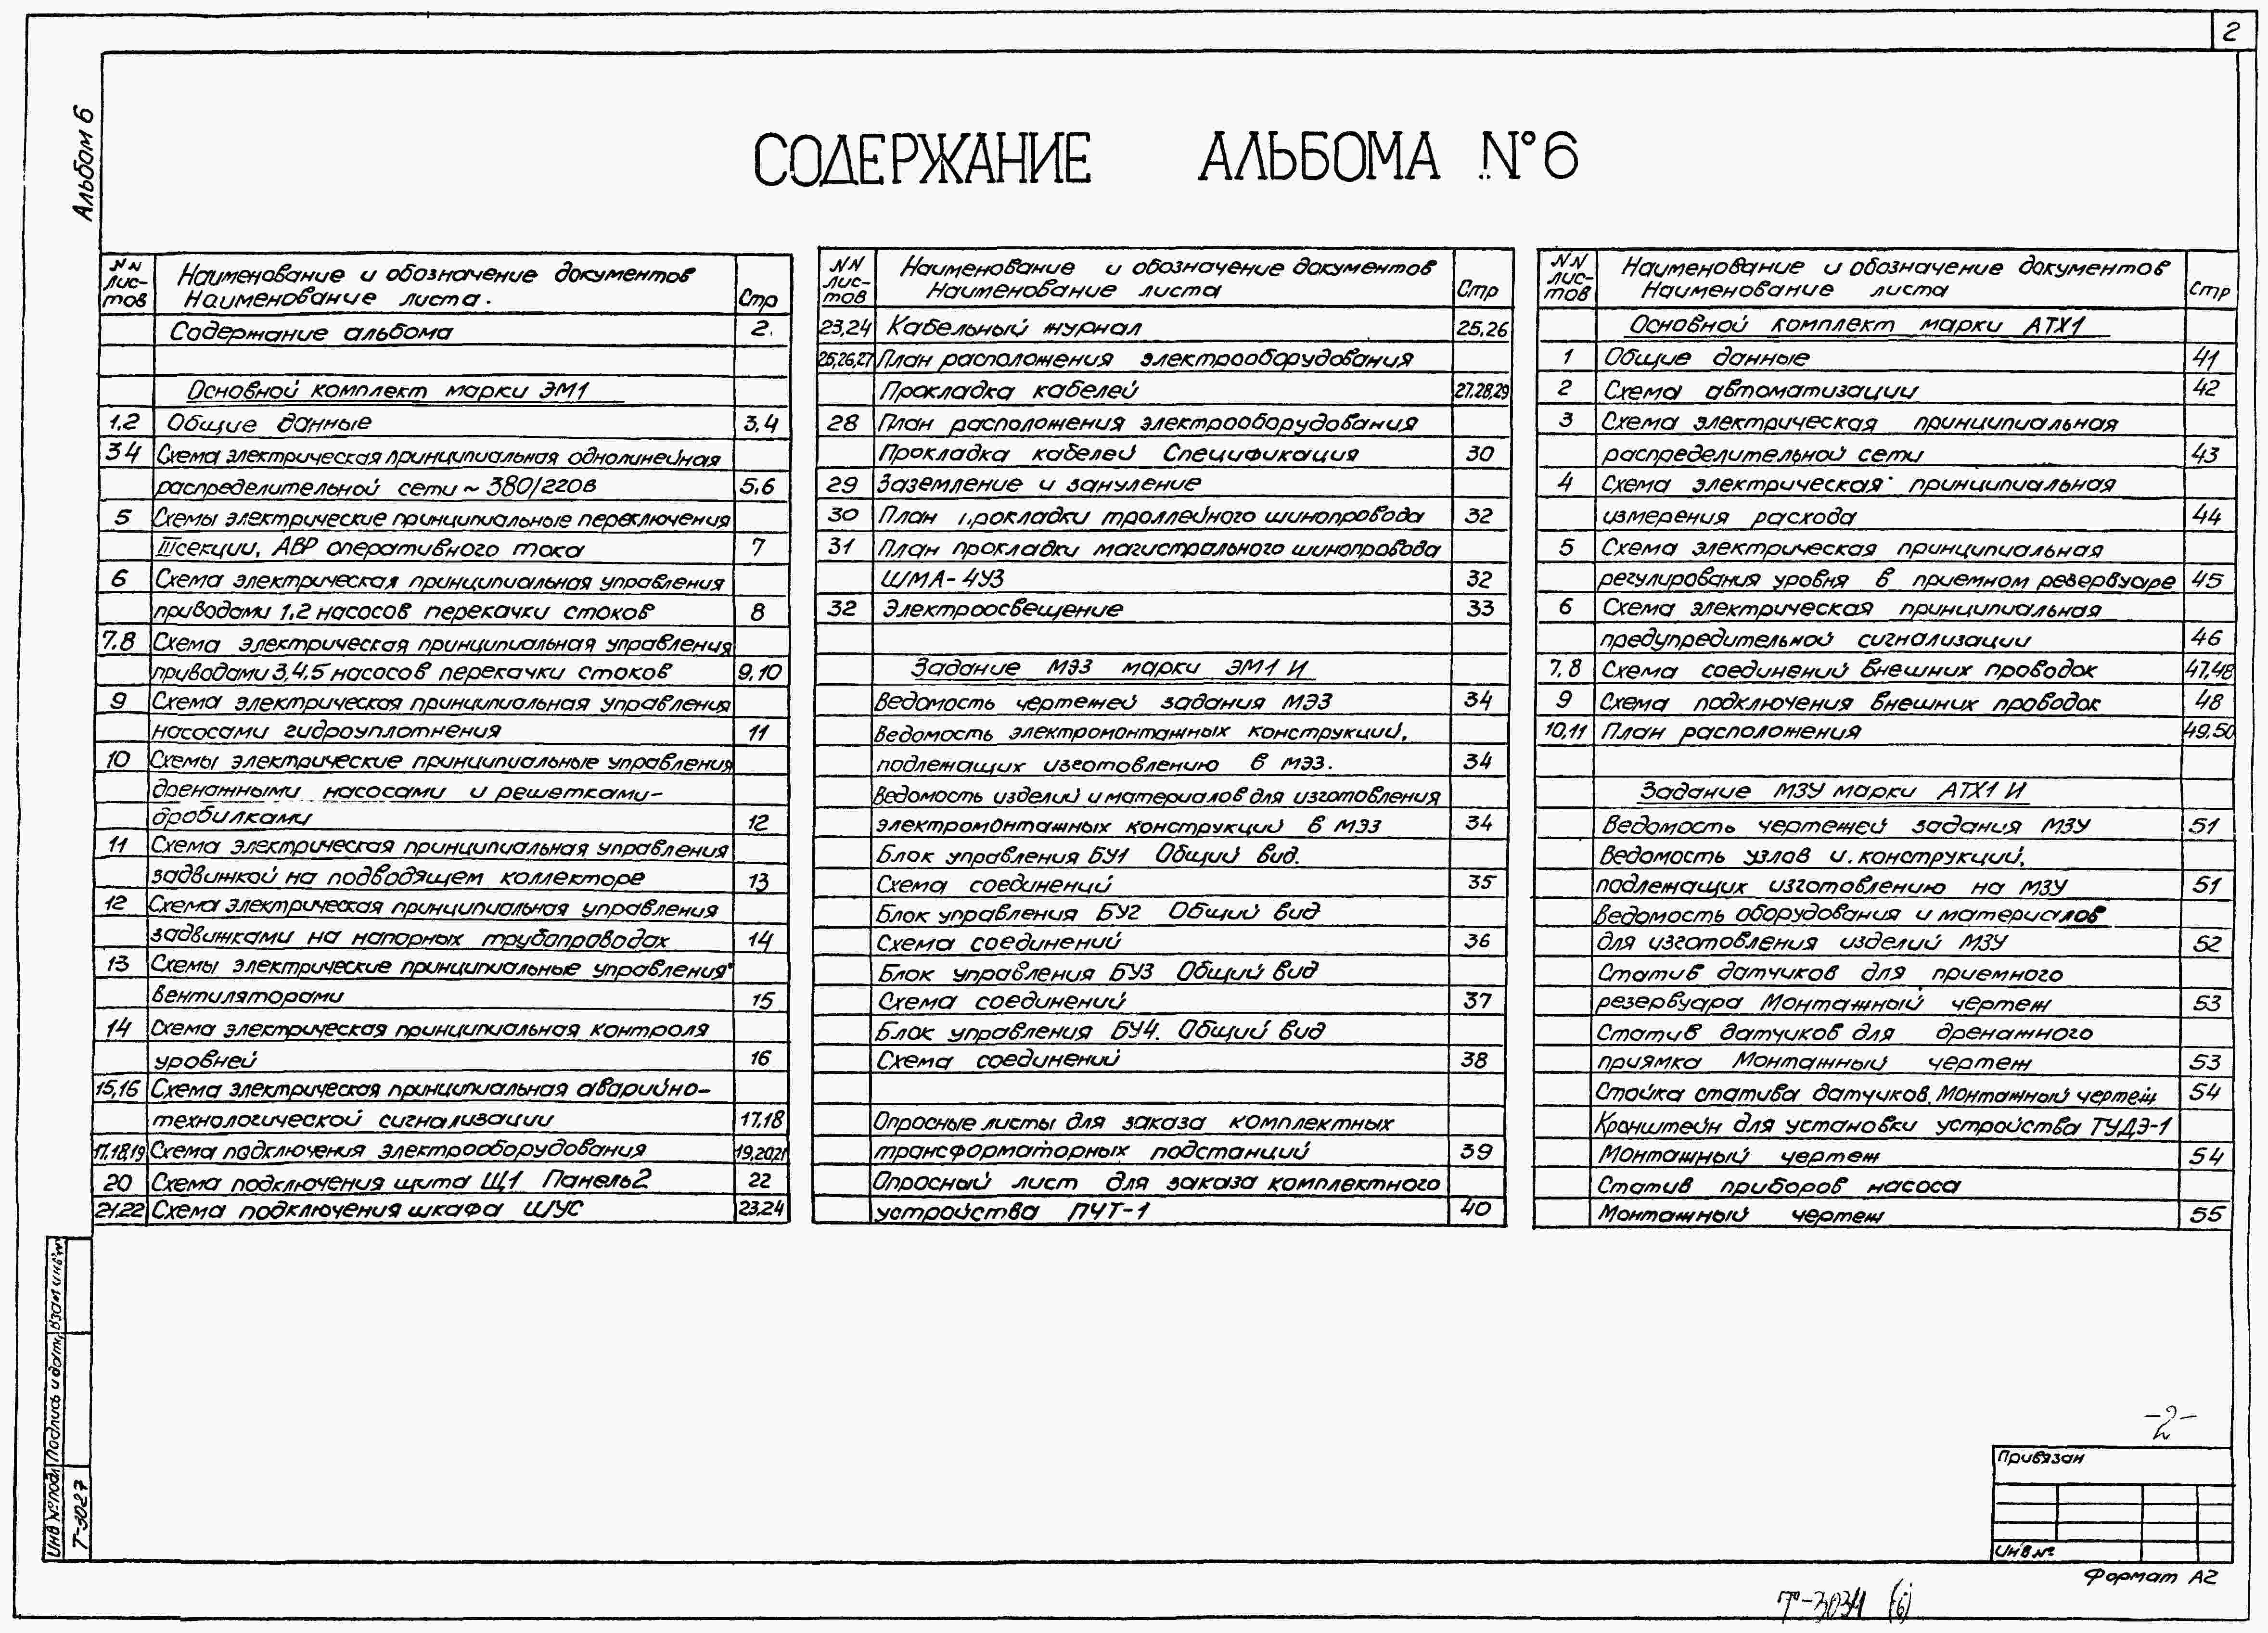 2
Альбом 6
СОДЕРЖАНИЕ АЛЬБОМА №6
NN листов Наименование и обозначение документов Наименование листа. Стр
Содержание альбома 2.
Основной комплект марки ЭМ1
1,2 Общие данные 3,4
3 4 Схема электрическая принципиальная однолинейная
распределительной сети ~ 380/220в 5,6
5 Схемы электрические принципиальные переключения
III секции, АВР оперативного тока 7
6 Схема электрическая принципиальная управления
приводами 1,2 насосов перекачки стоков 8
7.8 Схема электрическая принципиальная управления
приводами 3,4,5 насосов перекачки стоков 9,10
9 Схема электрическая принципиальная управления
насосами гидроуплотнения 11
10 Схемы электрические принципиальные управления
дренажными насосами и решетками-
дробилками 12
11 Схема электрическая принципиальная управления
задвижкой на подводящем коллекторе 13
12 Схема электрическая принципиальная управления
задвижками на напорных трубопроводах 14
13 Схемы электрические принципиальные управления
вентиляторами 15
14 Схема электрическая принципиальная контроля
уровней 16
15,16 Схема электрическая принципиальная аварийно-
технологической сигнализации 17,18
17.18.19 Схема подключения электрооборудования 19,20,21
20 Схема подключения щита Щ1 Панель 2 22
21.22 Схема подключения шкафа ШУС 23,24
NN листов Наименование и обозначение документов Наименование листа Стр
23,24 Кабельный журнал 25,26
25,26,27 План расположения электрооборудования
Прокладка кабелей 27.28,29
28 План расположения электрооборудования
Прокладка кабелей Спецификация 30
29 Заземление и зануление
30 План прокладки троллейного шинопровода 32
31 План прокладки магистрального шинопровода
ШМА-4У3 32
32 Электроосвещение 33
Задание МЭЗ марки ЭМ1 И
Ведомость чертежей задания МЭЗ 34
Ведомость электромонтажных конструкций,
подлежащих изготовлению в МЭЗ. 34
Ведомость изделий и материалов для изготовления
электромонтажных конструкций в МЭЗ 34
Блок управления БУ1 Общий вид.
Схема соединений 35
Блок управления БУ2 Общий вид
Схема соединений 36
Блок управления БУ3 Общий вид
Схема соединений 37
Блок управления БУ4. Общий вид
Схема соединений 38
Опросные листы для заказа комплектных
трансформаторных подстанций 39
Опросный лист для заказа комплектного
устройства ПЧТ-1 40
NN листов Наименование и обозначение документов Наименование листа Стр
Основной комплект марки АТХ1
1 Общие данные 41
2 Схема автоматизации 42
3 Схема электрическая принципиальная
распределительной сети 43
4 Схема электрическая принципиальная
измерения расхода 44
5 Схема электрическая принципиальная
регулирования уровня в приемном резервуаре 45
6 Схема электрическая принципиальная
предупредительной сигнализации 46
7,8 Схема соединений внешних проводок 47,48
9 Схема подключения внешних проводок 48
10,11 План расположения 49,50
Задание МЗУ марки АТХ1 И
Ведомость чертежей задания МЗУ 51
Ведомость узлов и. конструкций,
подлежащих изготовлению на МЗУ 51
Ведомость оборудования и материалов
для изготовления изделий МЗУ 52
Статив датчиков для приемного
резервуара Монтажный чертеж 53
Статив датчиков для дренажного
приямка Монтажный чертеж 53
Стойка статива датчиков. Монтажный чертеж 54
Кронштейн для установки устройства ТУДЭ-1
Монтажный чертеж 54
Статив приборов насоса
Монтажный чертеж 55
Взам инв №
Подпись и дата
Инв № подл
Т-3027
-2-
Привязан
Инв №
Формат А2
Т-3034 (6)